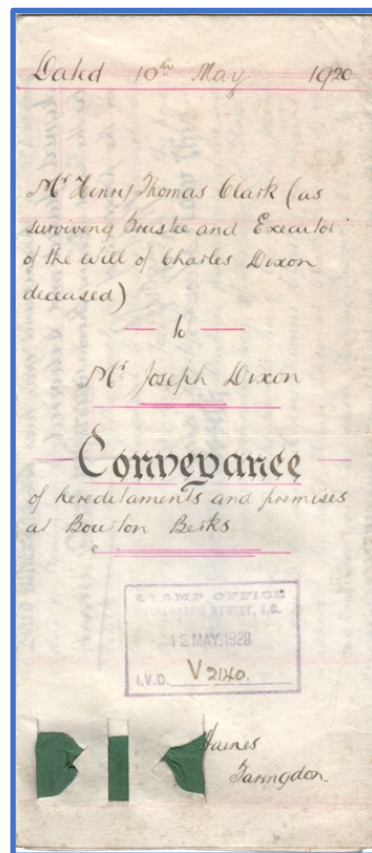 Dated 10th May 1920
Mr Henry Thomas Clark (as
surviving Trustee and Executor
of the Will of Charles Dixon
deceased)
to
Mr Joseph Dixon
Conveyance
of heredetaments and premises
at Bourton Berks
STAMP OFFICE
STREET, E.C.
12 MAY.1920
I.V.D. V2140.
Haines
Faringdon.